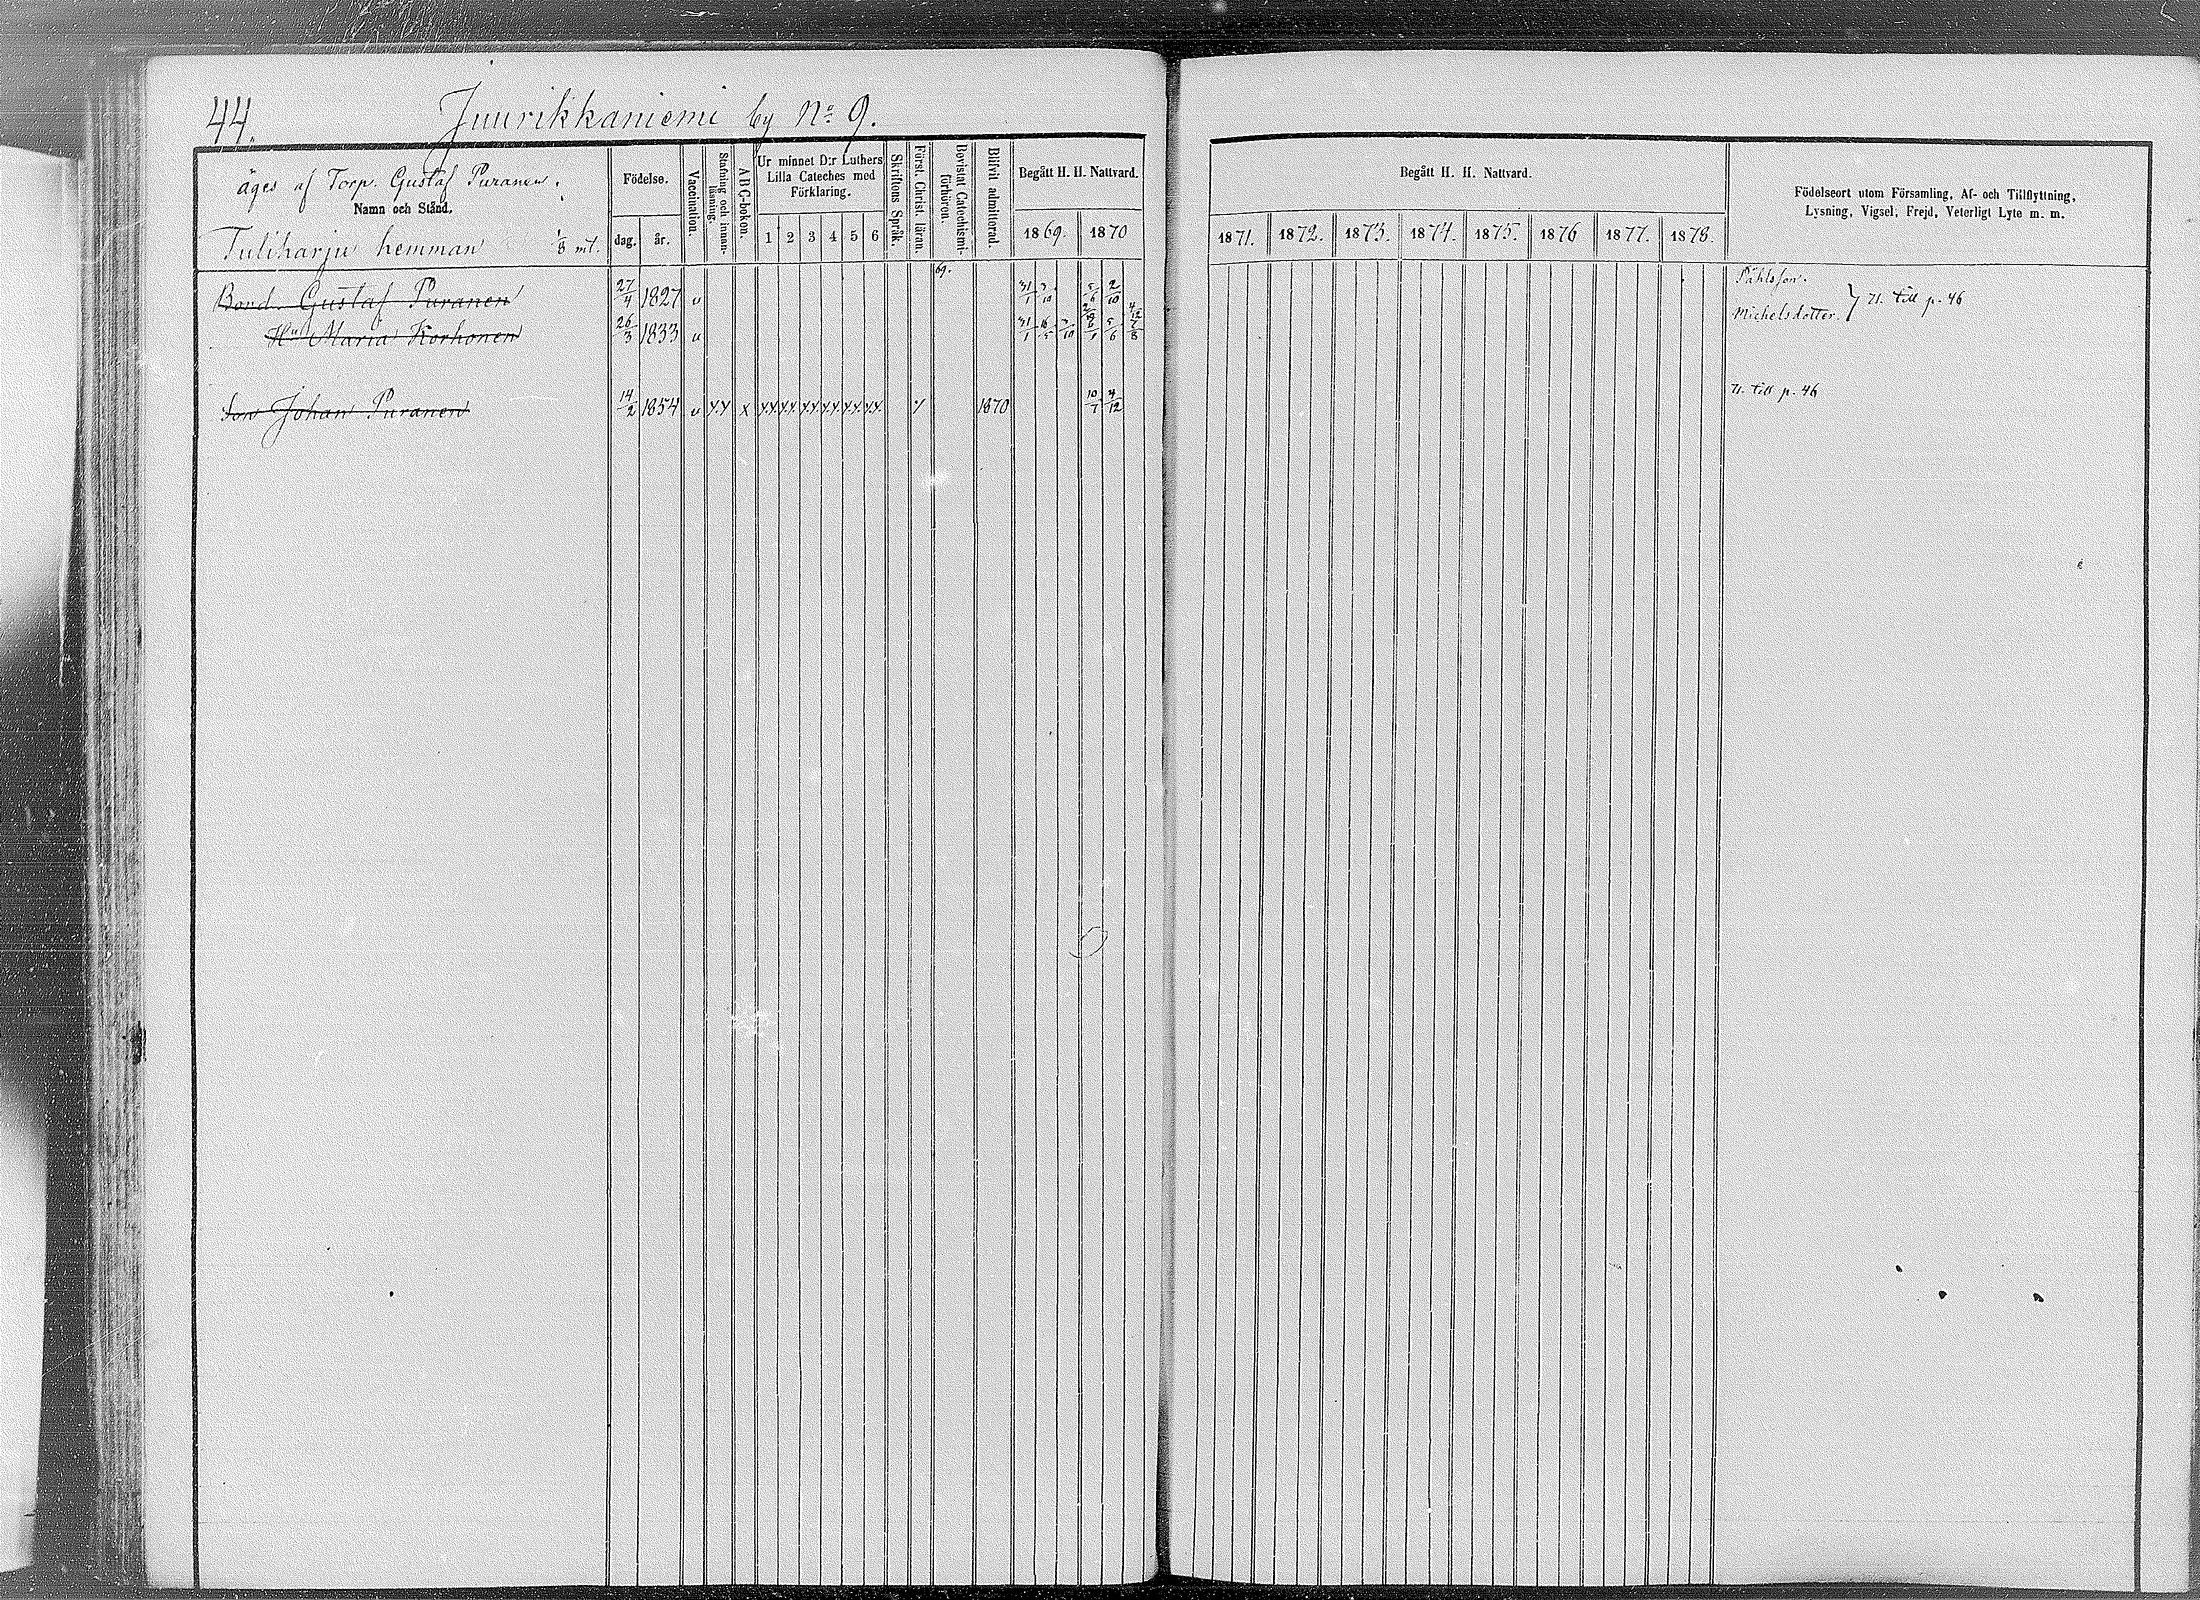 44.
Juurikkaniemi by No 9.
äges af Torp. Gustaf Puranen.
Namn och Stånd.
Tuliharju hemman 1/8 mtl.
Födelse.
dag. år.
Vaccination.
Stafning och innanläsning.
ABC-boken.
Ur minnet D:r Luthers
Lilla Cateches med
Förklaring.
1 2 3 4 5 6
Skriftens Språk.
Först. Christ. läran.
Bevistat Catechismiförhören.
Blifvit admitterad.
Begått H. H. Nattvard.
1869. 1870
Begått H. H. Nattvard.
1871. 1872. 1873. 1874. 1875. 1876 1877. 1878.
Födelseort utom Församling, Af- och Tillflyttning,
Lysning, Vigsel, Frejd, Veterligt Lyte m. m.
69.
Bond. Gustaf Puranen 27/4 1827 v 31/1 3/10 5/6 2/10 Påhlsson.
Hu Maria Korhonen 26/3 1833 v 31/1 16/5 3/10 6/1 5/6 7/8 4/12 Michelsdotter. } 71. till p. 46
Son Johan Puranen 14/2 1854 v 1870 10/7 4/12 71. till p. 46